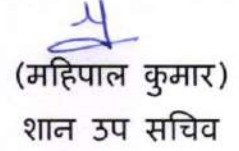 (महिपाल कुमार)
शान उप सचिव